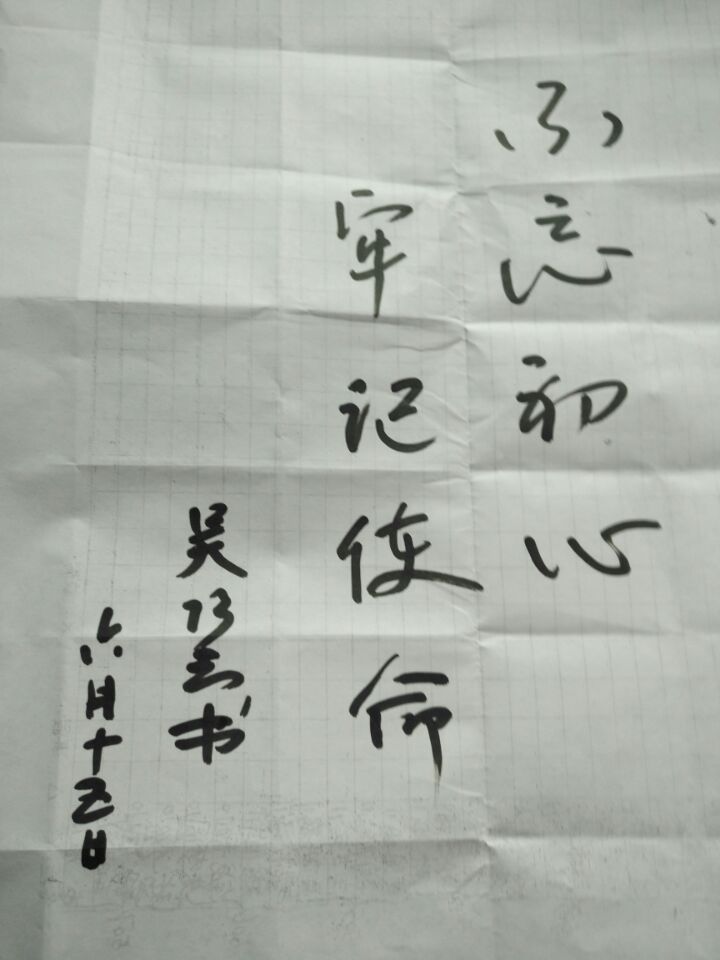 不忘初心
牢记使命
吴乃云书
六月十五日